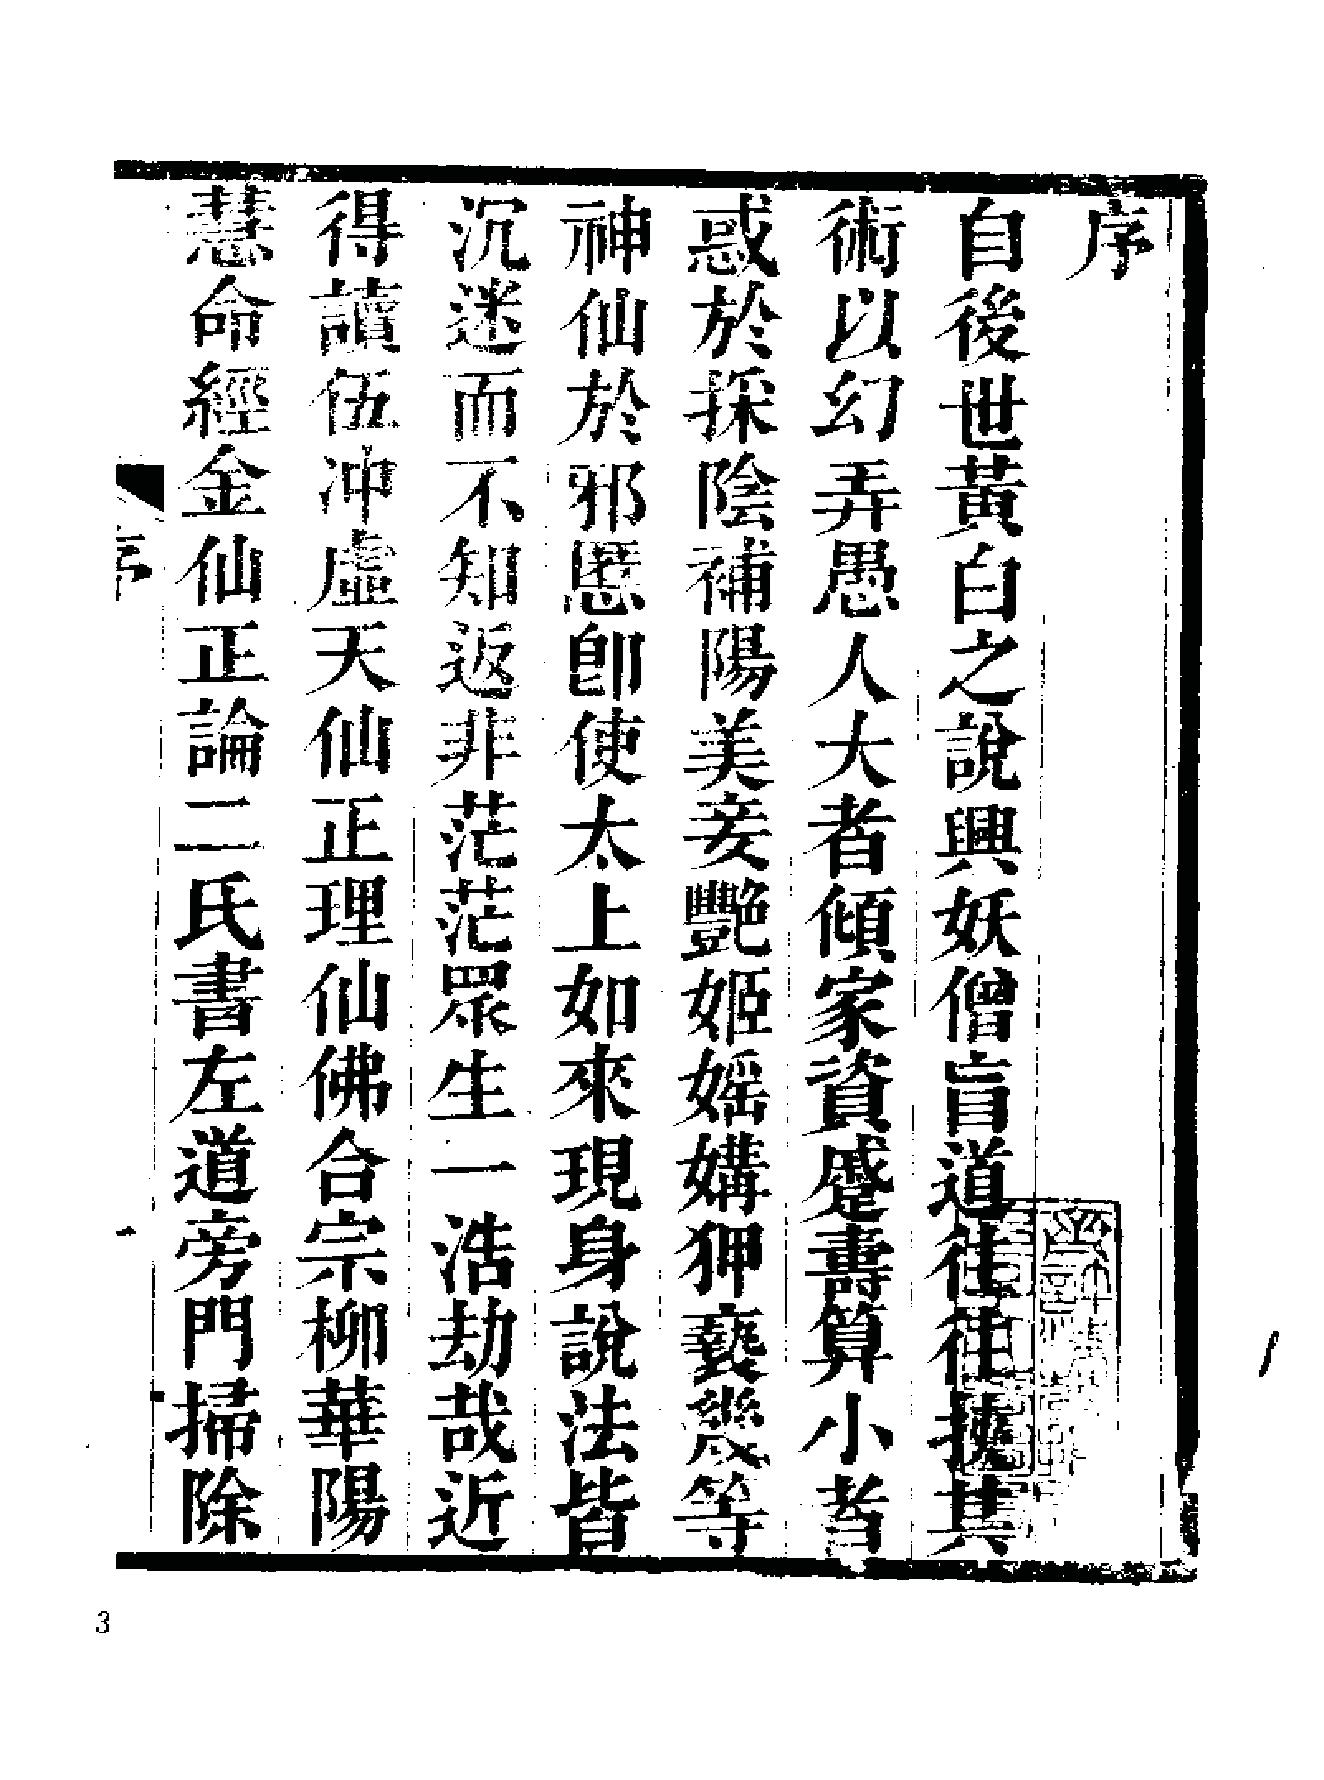 序
自後世黃白之說興妖僧盲道往往挾其
術以幻弄愚人大者傾家資蹙壽算小者
惑於採陰補陽美妾艷姬婬媾狎褻幾等
神仙於邪慝卽使太上如來現身說法皆
沉迷而不知返非茫茫眾生一浩劫哉近
得讀伍冲虛天仙正理仙佛合宗柳華陽
慧命經金仙正論二氏書左道旁門掃除
序
一
3